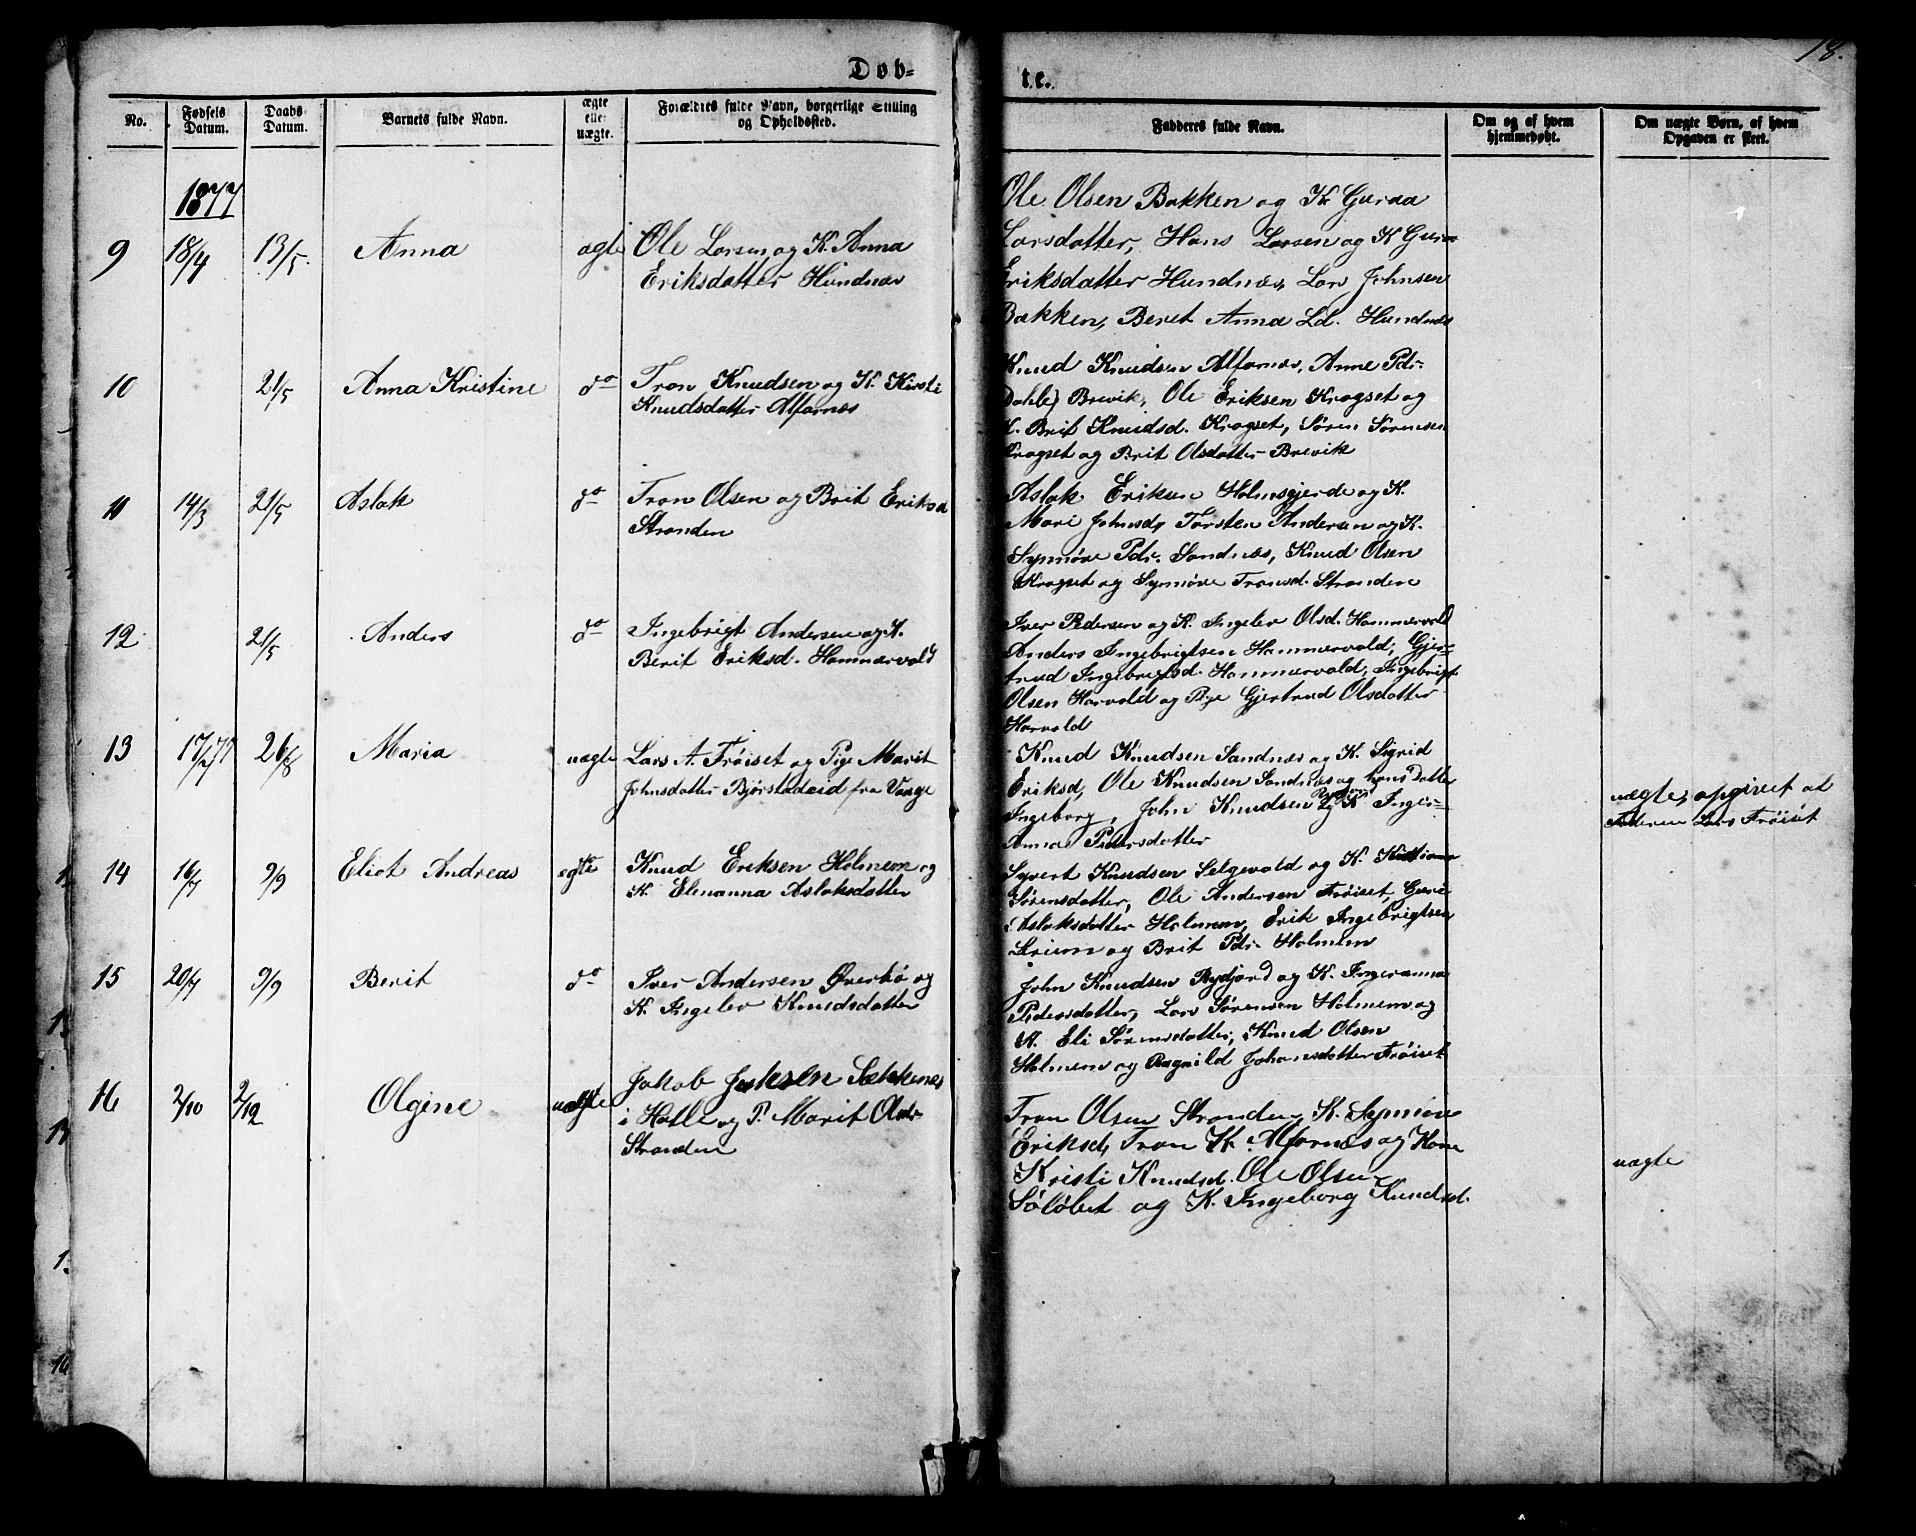 18.
Døb-
te.
No.
Fødsels Datum.
Daabs Datum.
Barnets fulde Navn.
ægte eller uægte.
Forældres fulde Navn, borgerlige Stilling og Opholdssted.
Fadderes fulde Navn.
Om og af hvem hjemmedøbt.
Om uægte Børn, af hvem Opgaven er skeet.
1877
9 18/4 13/5. Anna ægte
Ole Larsen og K. Anna
Eriksdatter Hundnæs
Ole Olsen Bakken og K Guraa
Larsdatter, Hans Larsen og K Guru
Eriksdatter Hundnæs, Lars Johnsen
Bakken, Beret Anna Ld. Hundnæs
10 21/5 Anna Kristine do
Tron Knudsen og K. Kirsti
Knudsdatter Alfarnæs
Knud Knudsen Alfarnæs, Anne Pdr
Dahle, Brevik, Ole Eriksen Kragset og
K. Brit Knudsd. Kragset, Søren Sørensen
Kragset og Brit Olsdatter Brevik
11 14/3 21/5 Aslak do
Tron Olsen og Brit Eriksd
Stranden
Aslak Eriksen Holmsgjerde og K.
Mari Johnsd, Torsten Andersen og K.
Synnøve Pdr. Sandnæs, Knud Olsen
Kragset og Synnøve Tronsd. Stranden
12 21/5 Anders do
Ingebrigt Andersen og K.
Berit Eriksd. Hammervold
Iver Pedersen og K. Ingelev Olsd. Hammervold
Anders Ingebrigtsen Hammervold, Gjer-
trud Ingebrigtsd. Hammervold, Ingebrigt
Olsen Harvold og Pige Gjertrud Olsdatter
Harvold
13 17/2 77 26/8 Maria uægte
Lars A. Frøiset og Pige Marit
Johnsdatter Bjørstadeid fra Vaage
Knud Knudsen Sandnæs og K. Sigrid
Eriksd, Ole Knudsen Sandnæs og hans Datter
Ingeborg, John Knudsen Rydjord og K Inger-
Anna Pedersdatter
uægte, opgivet af
Faderen Lars Frøiset
14 16/7 9/9 Eliot Andreas ægte
Knud Eriksen Holmem og
K. Elenanna Aslaksdatter
Syvert Knudsen Selgevold og K. Kristianna
Sørensdatter, Ole Andersen Frøiset, Guri
Aslaksdatter Holmem, Erik Ingebrigtsen
og Brit Pdr Holmem
15 20/7 9/9 Berit do
Iver Andersen Øverbø og
K. Ingelev Knudsdatter
John Knudsen Rydjord og K. Ingeranna
Pedersdatter, Lars Sørensen Holmem og
K. Eli Sørensdatter, Knud Olsen
Holmem og Ragnild Johansdatter Frøiset
16 2/10 2/12 Olgine uægte
Jakob Jakobsen Sækkenæs
i Hatle og P. Marit Olsdr
Stranden
Tron Olsen Stranden, K. Synnøve
Eriksd, Tron K. Alfarnæs og Kone
Kristi Knudsd. Ole Olsen
Søløbet og K. Ingeborg Knudsd.
uægte